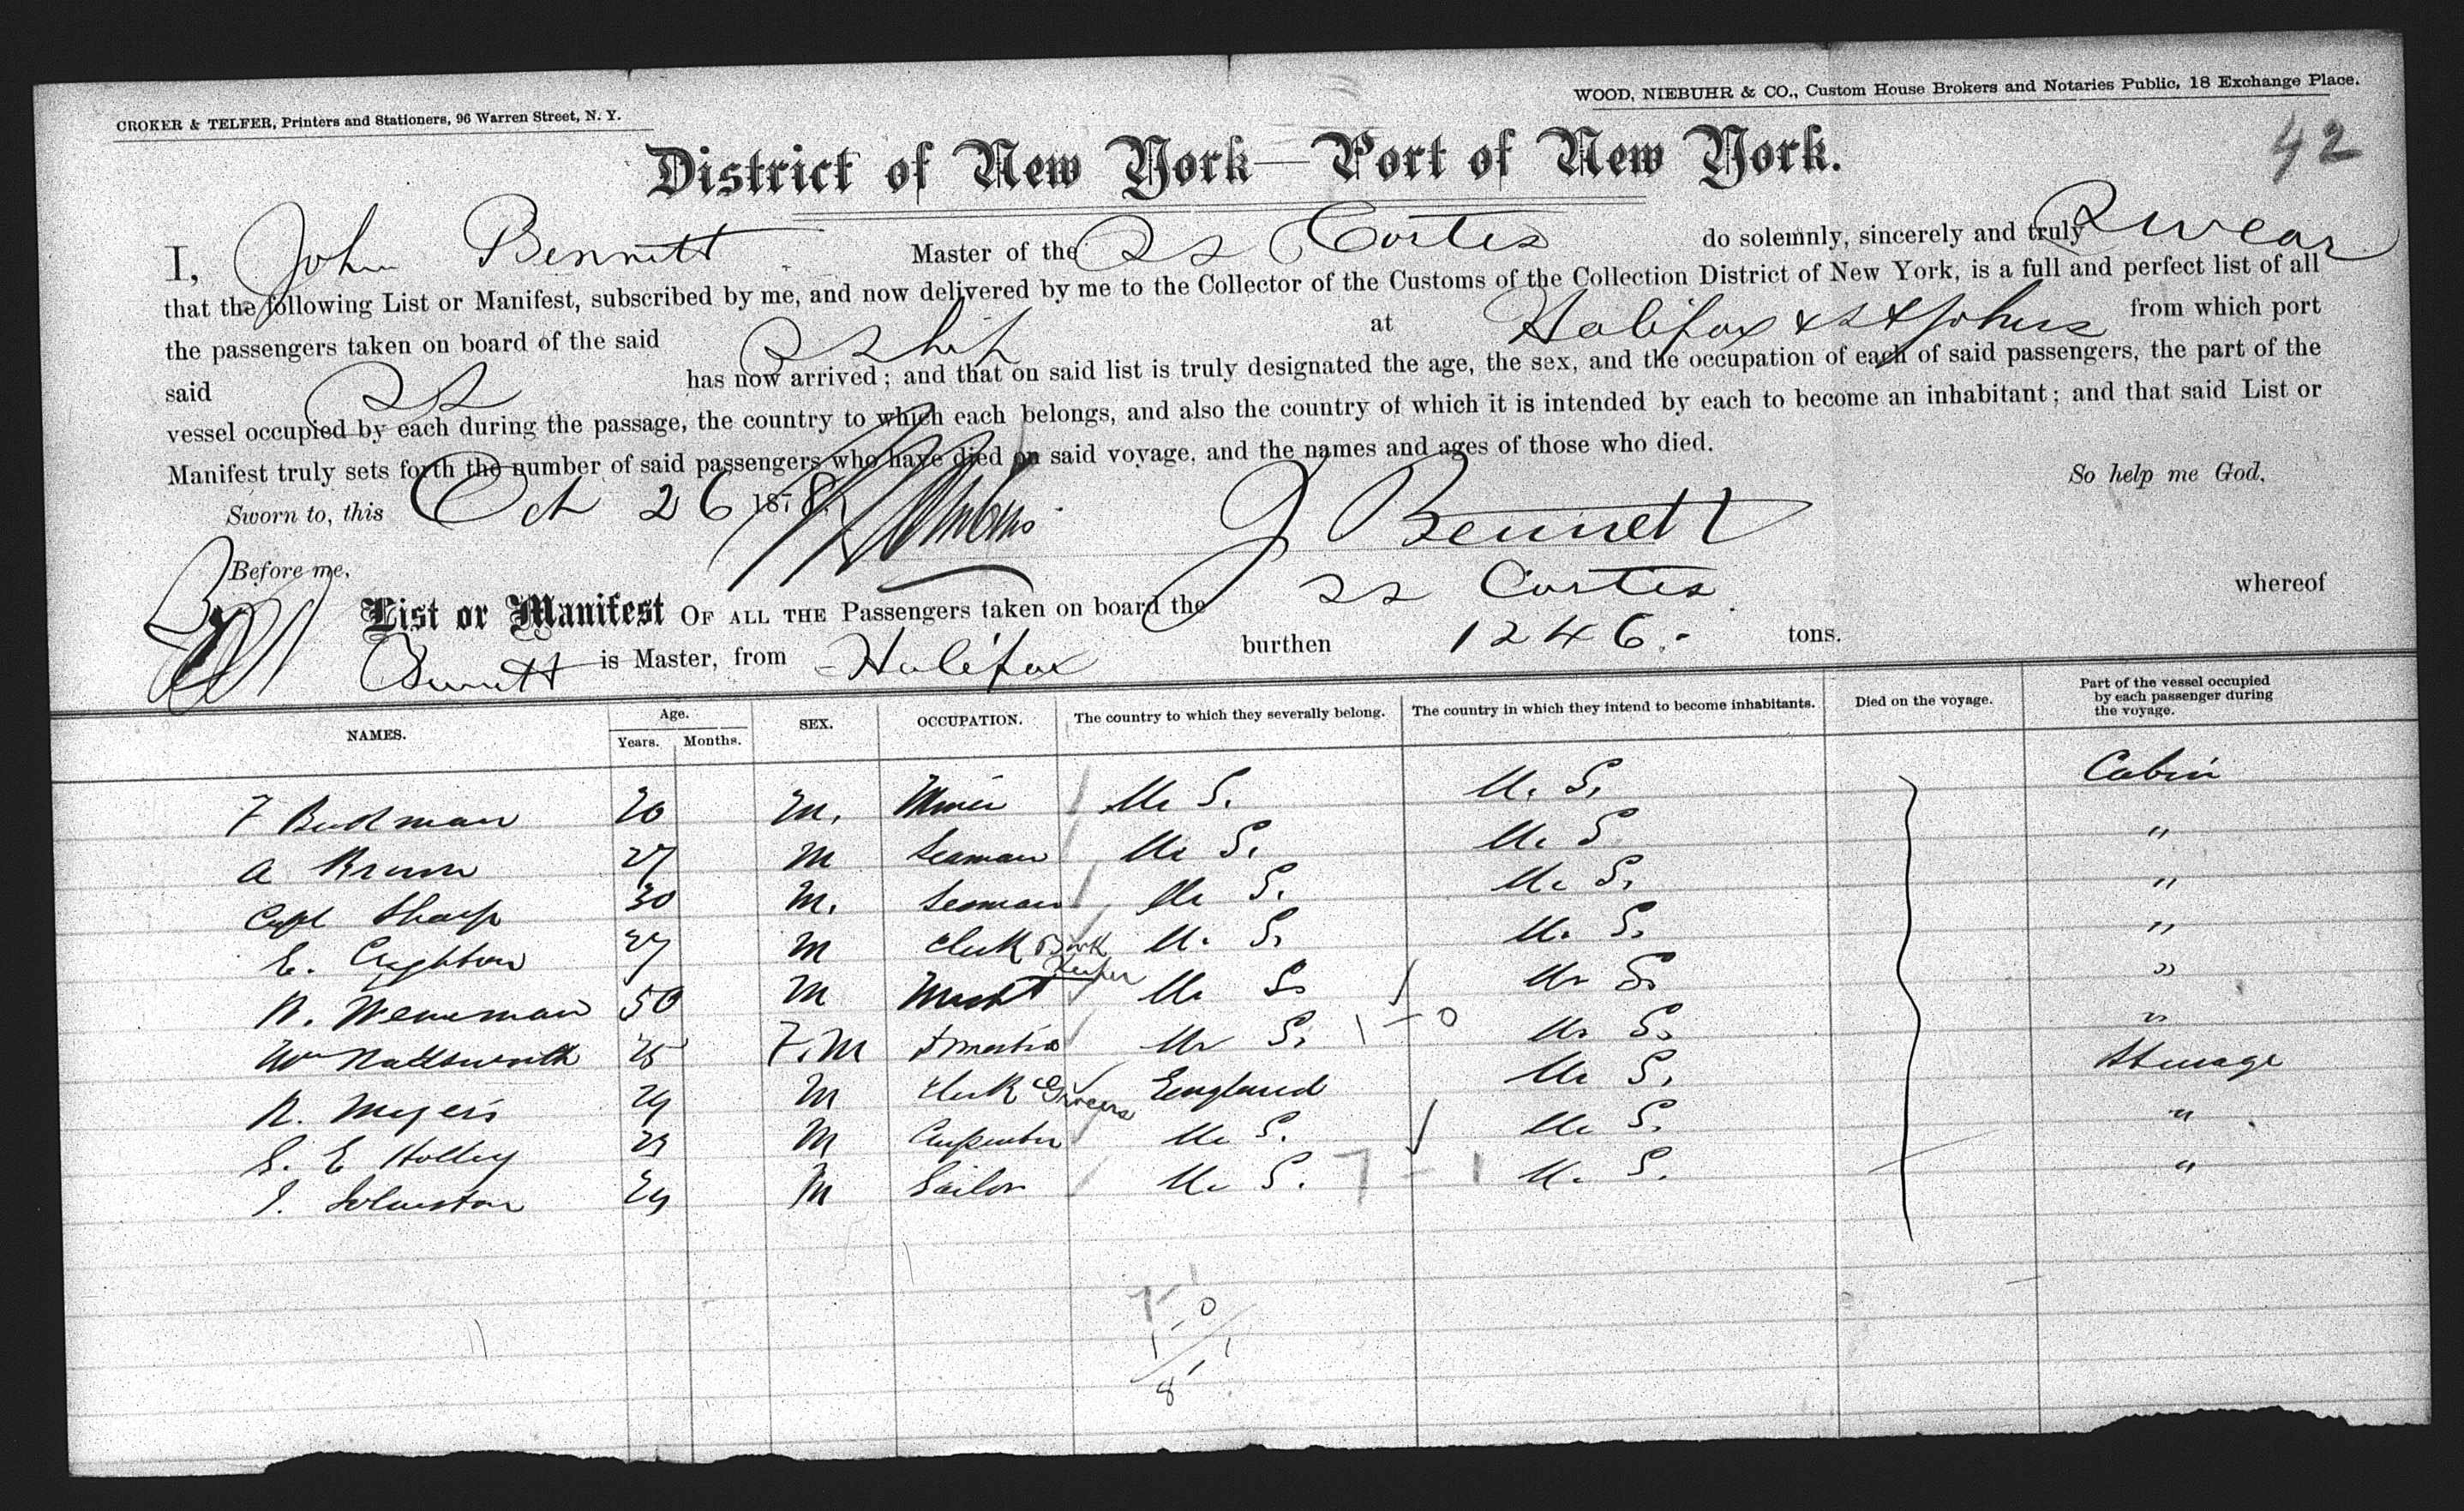 CROKER & TELFER, Printers and Stationers, 96 Warren Street, N. Y.
WOOD, NIEBUHR & CO., Custom House Brokers and Notaries Public, 18 Exchange Place.
42
District of New York—Port of New York.
I, John Bennett Master of the SS Cortes do solemnly, sincerely and truly Swear
that the following List or Manifest, subscribed by me, and now delivered by me to the Collector of the Customs of the Collection District of New York, is a full and perfect list of all
the passengers taken on board of the said SShip at Halifax & St Johns from which port
said SS has now arrived; and that on said list is truly designated the age, the sex, and the occupation of each of said passengers, the part of the
vessel occupied by each during the passage, the country to which each belongs, and also the country of which it is intended by each to become an inhabitant; and that said List or
Manifest truly sets forth the number of said passengers who have died on said voyage, and the names and ages of those who died.
So help me God.
Sworn to, this Oct 26 1878
J Bennett
Before me,
List or Manifest OF ALL THE Passengers taken on board the SS Cortes whereof
Bennett is Master, from Halifax burthen 1246 tons.
NAMES. Age. Years. Months. SEX. OCCUPATION. The country to which they severally belong. The country in which they intend to become inhabitants. Died on the voyage. Part of the vessel occupied by each passenger during the voyage.
F 20 M. U. S. U. S. Cabin
A Brown 27 M Seaman U. S. U. S. "
Capt Sharp 30 M. Seaman U. S. U. S. "
E. Crighton 27 M Clerk Book Keeper U. S. U. S. "
N. 50 M Mercht U. S. U. S. "
Wm Wadsworth 25 F. M Domestic U. S. 1 - 0 U. S. "
N. Meyers 29 M Clerk Grocers England U. S. Steerage
S. E Holley 23 M Carpenter U. S. U. S. "
J. Johnston 29 M Sailor U. S. 7 - 1 U. S. "
7 1
1 - 0
8 1